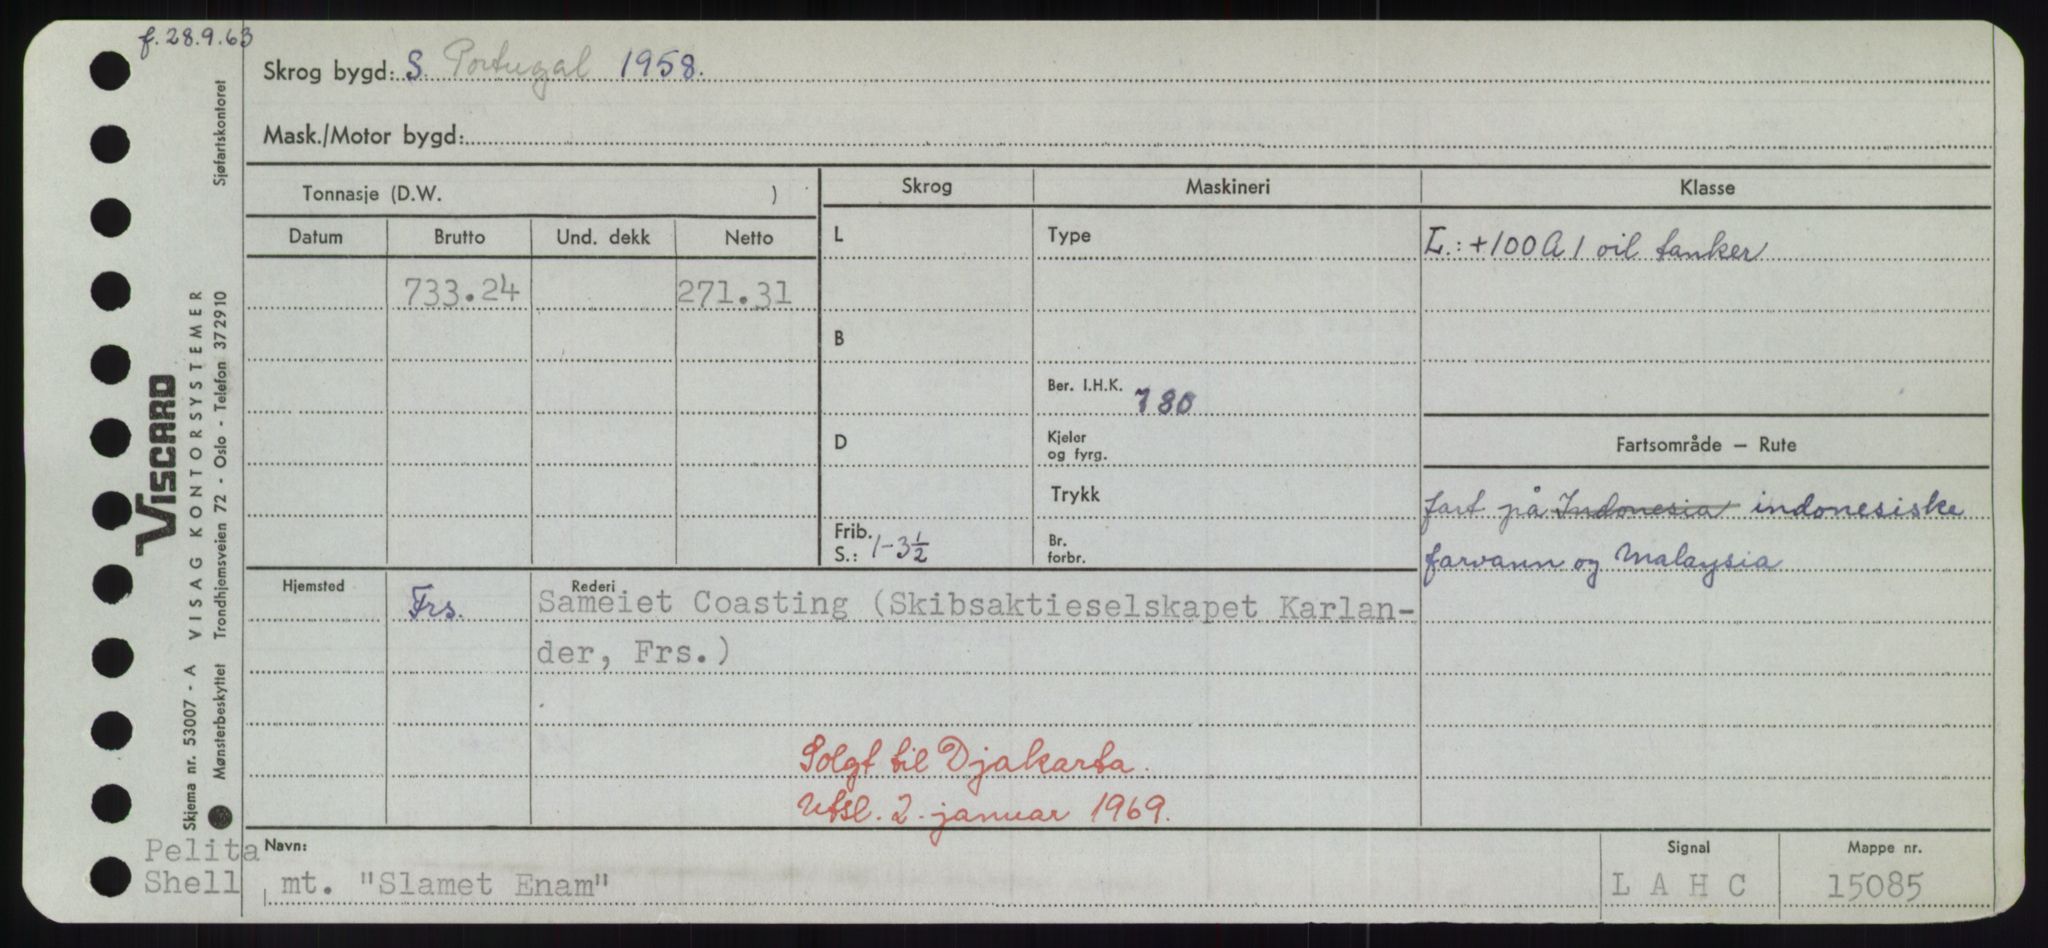 f. 28.9.63
Skrog bygd: S. Portugal 1958.
Mask./Motor bygd:
Tonnasje (D.W. )
Skrog
Maskineri
Klasse
Datum
Brutto
Und. dekk
Netto
L
Type
L.: +100A1 oil tanker
733.24
271.31
B
Ber. I.H.K. 780
D
Kjeler
og fyrg.
Fartsområde – Rute
Trykk
fart på Indonesia indonesiske
Frib.
S.: 1-3½
Br.
forbr.
farvann og Malaysia
Hjemsted
Frs.
Rederi
Sameiet Coasting (Skibsaktieselskapet Karlan-
der, Frs.)
Solgt til Djakarta.
Utsl. 2. januar 1969.
Navn:
Signal
Mappe nr.
Pelita
Shell
mt. "Slamet Enam"
L A H C
15085
VISCARD
Skjema nr. 53007 - A VISAG KONTORSYSTEMER
Mønsterbeskyttet Trondhjemsveien 72 - Oslo - Telefon 372910
Sjøfartskontoret